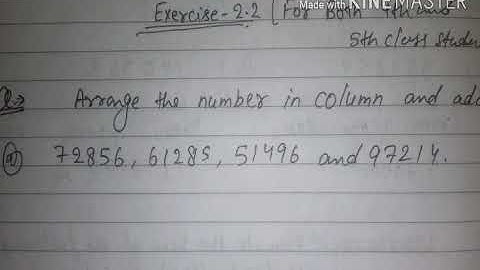 Made with KINEMASTER
Exercise-2.2 [For Both 4th and
5th class stude
Q→ Arrange the number in column and add
(a) 72856, 61285, 51496 and 97214.